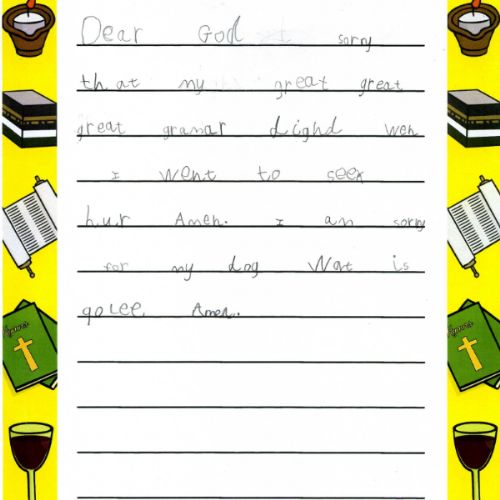 Dear God sorry
that my great great
great gramar dighd weh
I went to seek
h.u.r Amen. I am sorry
for my dog Wat is
qolee. Amen.
Hymns
Hymns